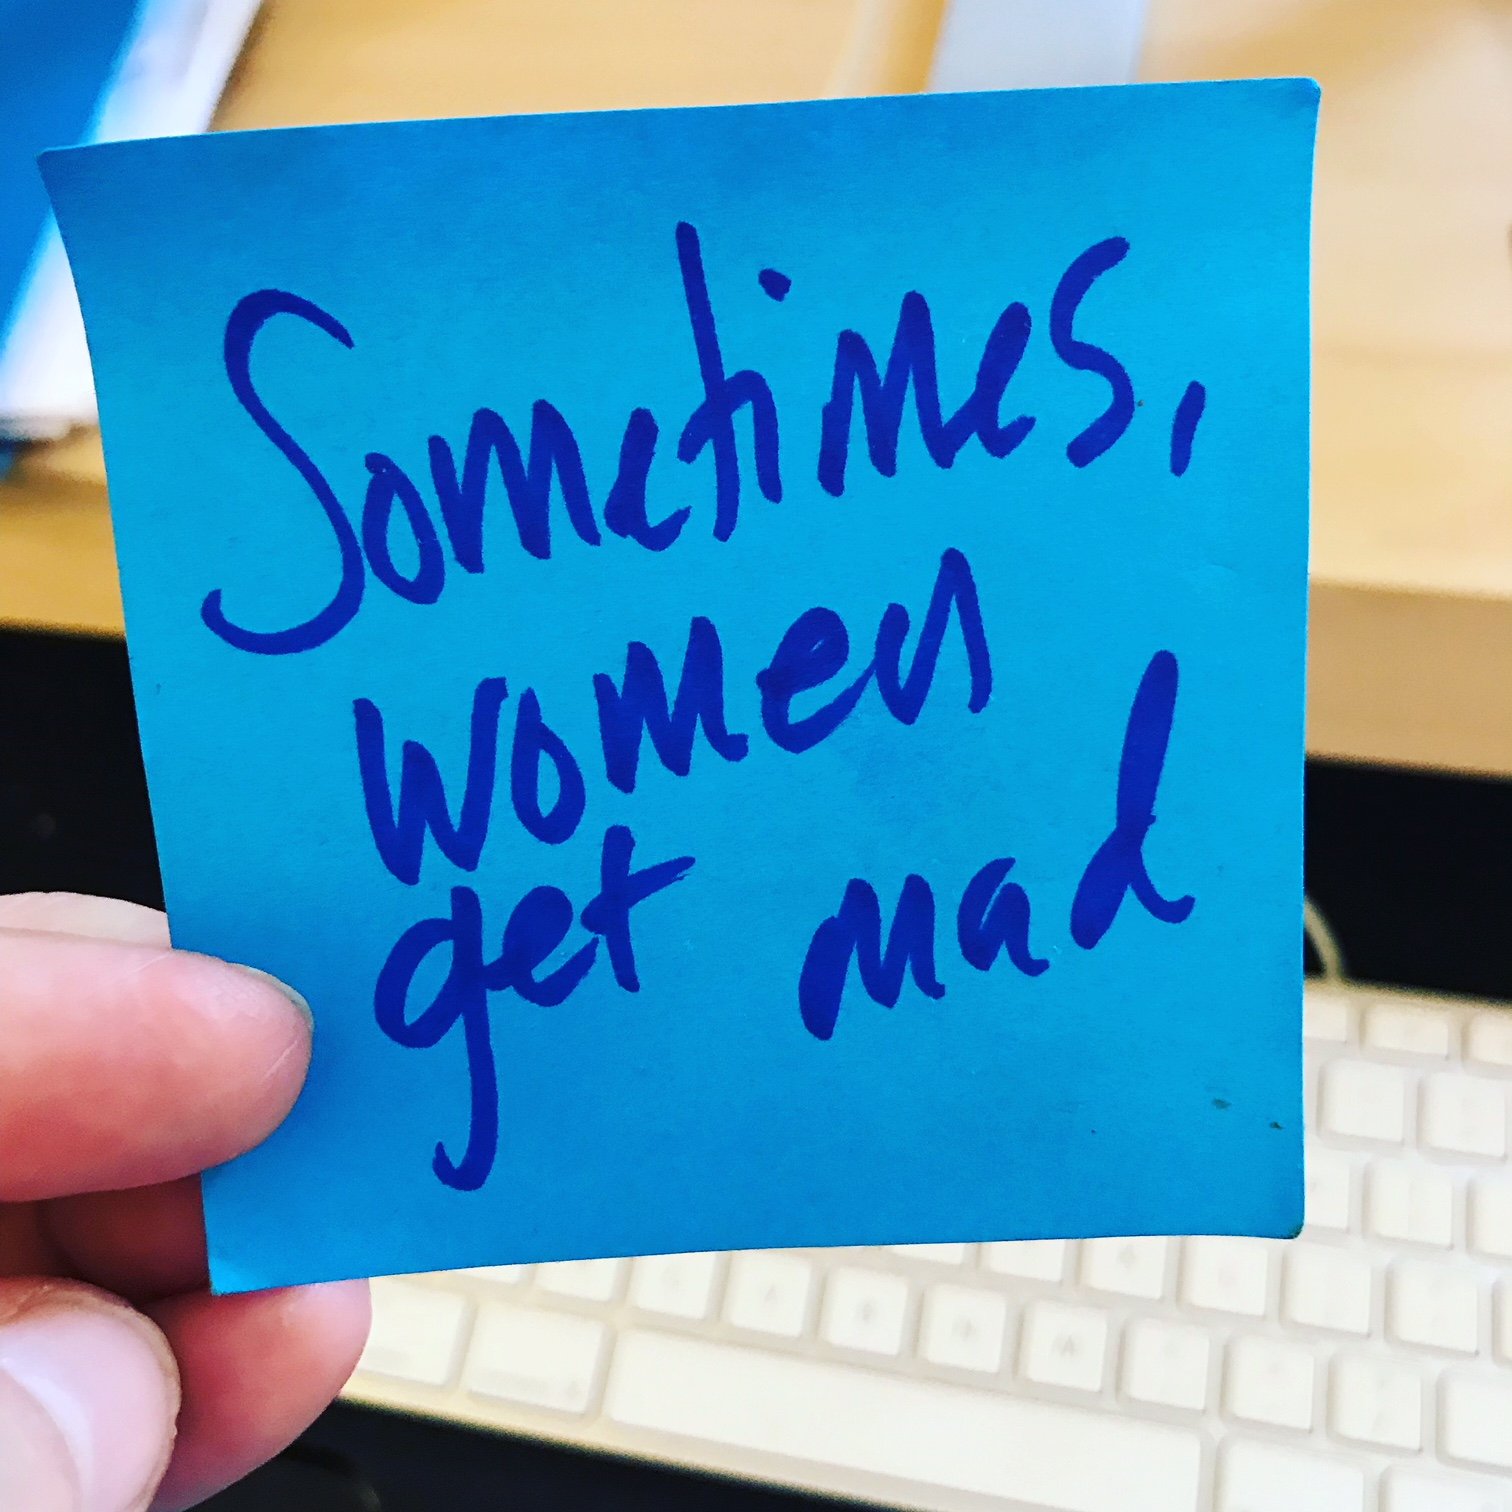 Sometimes,
women
get mad